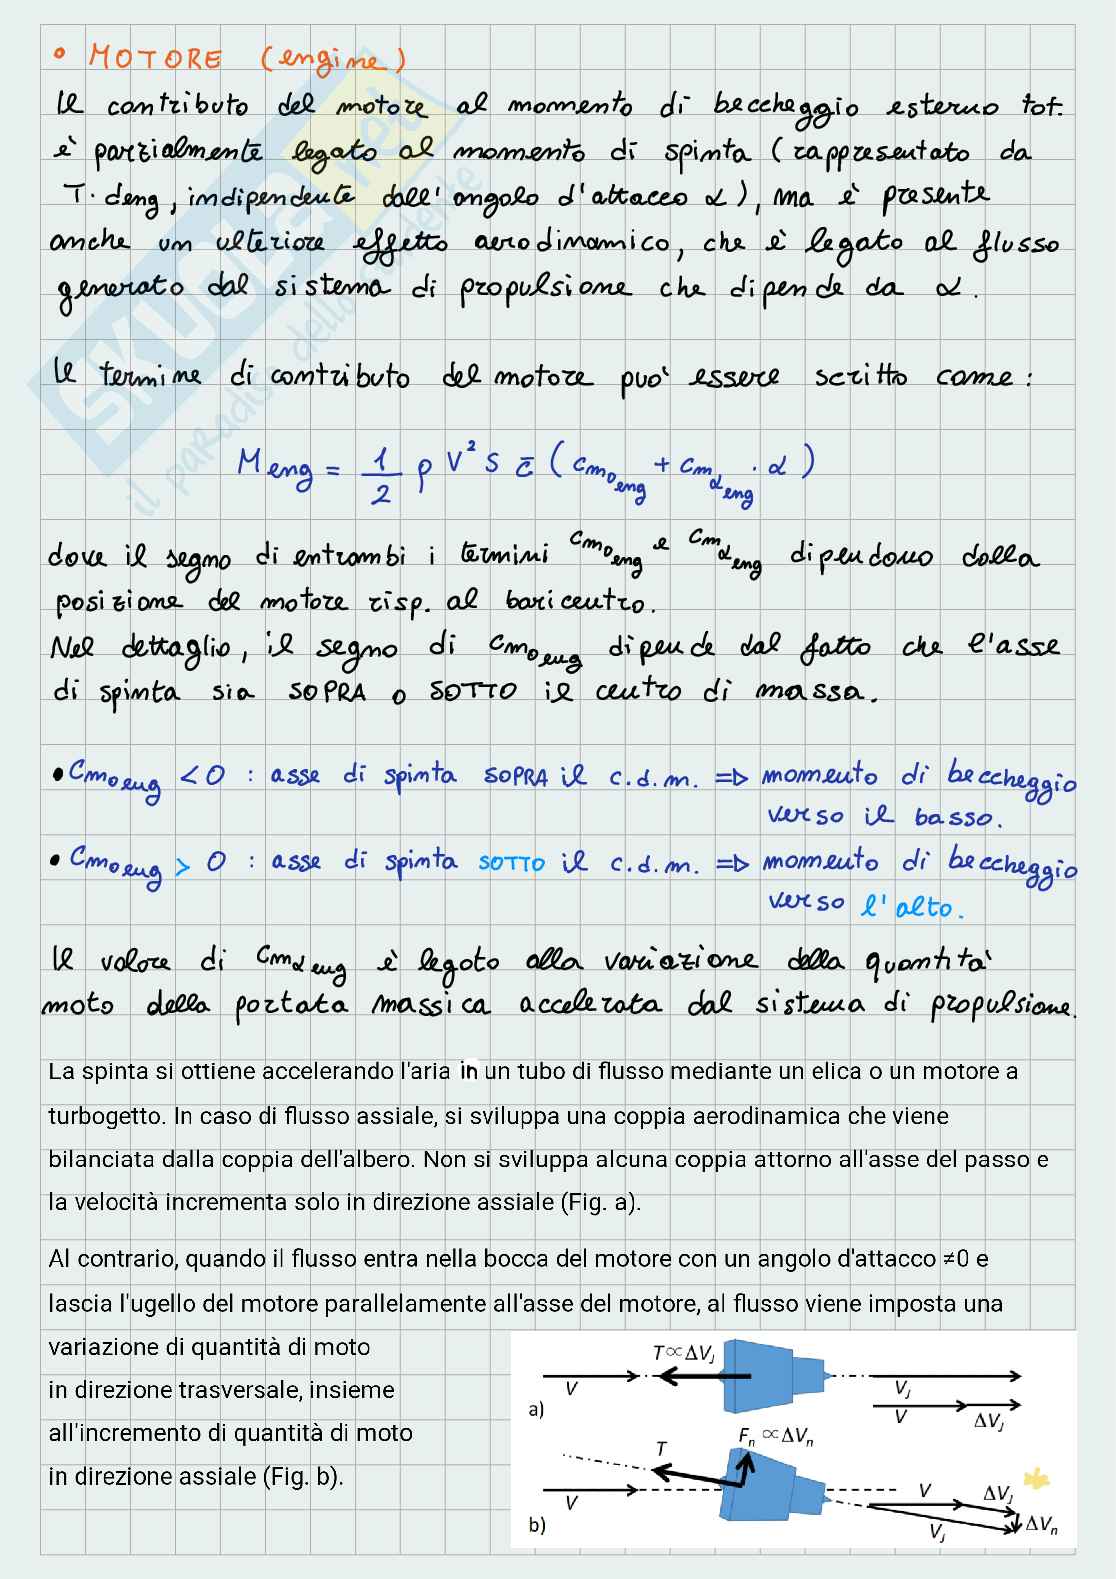 • MOTORE (engine)
Il contributo del motore al momento di beccheggio esterno tot.
è parzialmente legato al momento di spinta (rappresentato da
T · deng, indipendente dall'angolo d'attacco α), ma è presente
anche un ulteriore effetto aerodinamico, che è legato al flusso
generato dal sistema di propulsione che dipende da α.
Il termine di contributo del motore può essere scritto come:
M eng = 1/2 ρ V² S c̄ (Cm₀ eng + Cmα eng · α)
dove il segno di entrambi i termini Cm₀ eng e Cmα eng dipendono dalla
posizione del motore risp. al baricentro.
Nel dettaglio, il segno di Cm₀ eng dipende dal fatto che l'asse
di spinta sia SOPRA o SOTTO il centro di massa.
• Cm₀ eng < 0 : asse di spinta SOPRA il c.d.m. => momento di beccheggio
verso il basso.
• Cm₀ eng > 0 : asse di spinta SOTTO il c.d.m. => momento di beccheggio
verso l'alto.
Il valore di Cmα eng è legato alla variazione della quantità
moto della portata massica accelerata dal sistema di propulsione.
La spinta si ottiene accelerando l'aria in un tubo di flusso mediante un elica o un motore a
turbogetto. In caso di flusso assiale, si sviluppa una coppia aerodinamica che viene
bilanciata dalla coppia dell'albero. Non si sviluppa alcuna coppia attorno all'asse del passo e
la velocità incrementa solo in direzione assiale (Fig. a).
Al contrario, quando il flusso entra nella bocca del motore con un angolo d'attacco ≠0 e
lascia l'ugello del motore parallelamente all'asse del motore, al flusso viene imposta una
variazione di quantità di moto
in direzione trasversale, insieme
all'incremento di quantità di moto
in direzione assiale (Fig. b).
T∝ΔVj
V
Vj
a)
V
ΔVj
T
Fn ∝ΔVn
V
V
ΔVj
b)
Vj
ΔVn
SKUOLA.net
il paradiso dello studente